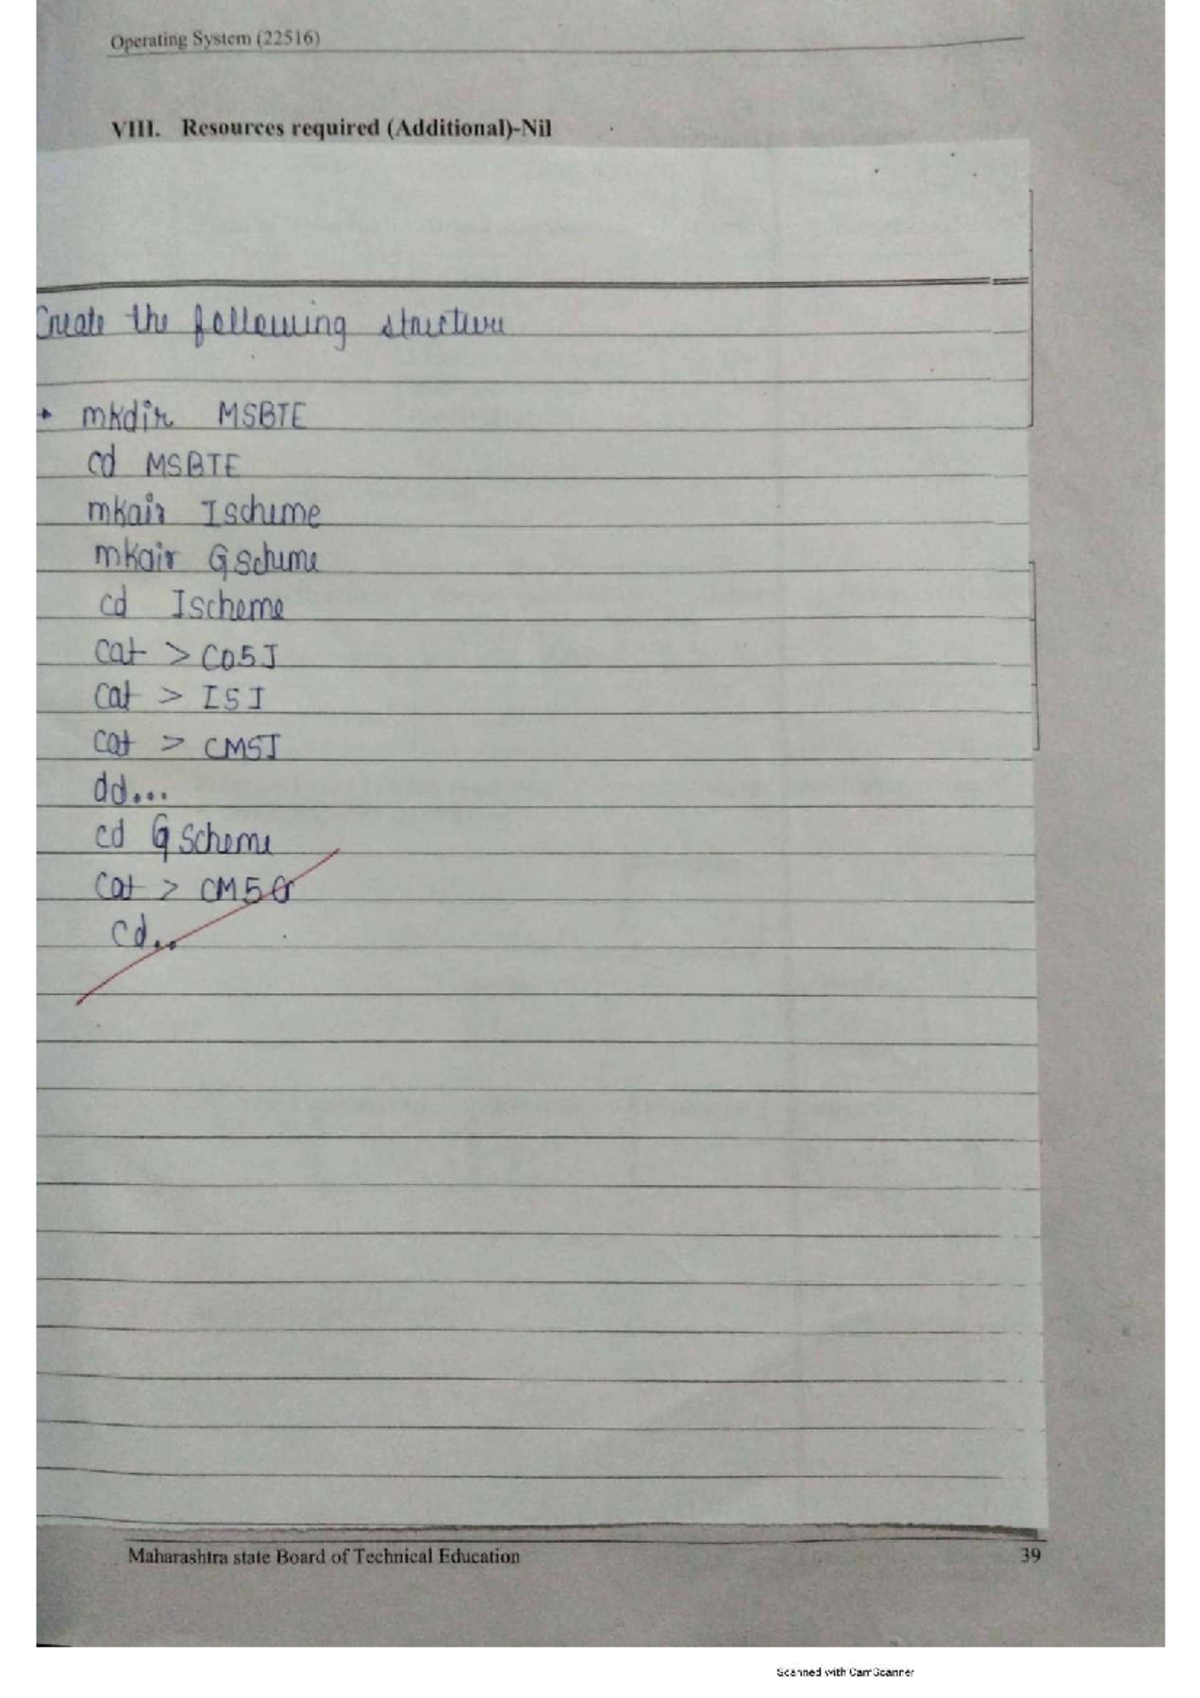 Operating System (22516)
VIII. Resources required (Additional)-Nil
Create the following structure
mkdir MSBTE
cd MSBTE
mkdir Ischeme
mkdir GScheme
cd Ischeme
cat > CO5I
cat > I5I
cat > CM5I
dd...
cd GScheme
cat > CM5G
cd..
Maharashtra state Board of Technical Education
39
Scanned with CamScanner